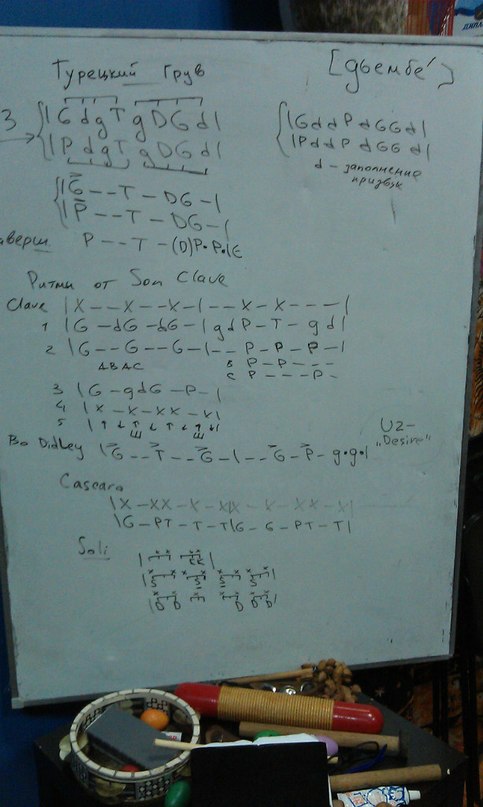 Турецкий Грув
[дьембе́]
3 {|G d g T g D G d|
→ |P d g T g D G d|
{|G d d P d G G d|
|P d d P d G G d|
d - заполнение
призвук
{|G - - T - DG - |
|P - - T - DG - |
аверш. P - - T - (D)P•P•|G
Ритмы от Son Clave
Clave |X - - X - - X - | - - X - X - - - |
1 |G - dG - dG - | g d P - T - g d|
2 |G - - G - - G - | - - P - P - P - |
ABAC
B P - P - - -
C P - - - P -
3 |G - g d G - P - |
4 |X - X - XX - X|
5
Bo Didley |G - - T - - G - | - - G - P - g•g•|
U2 -
"Desire"
Cascara
|X - XX - X - X|X - X - XX - X|
|G - PT - T - T|G - G - PT - T|
Soli